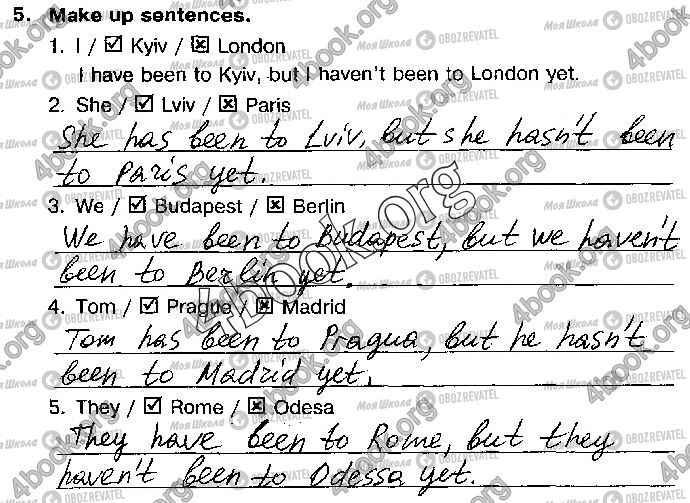 5. Make up sentences.
1. I / ☑ Kyiv / ☒ London
I have been to Kyiv, but I haven't been to London yet.
2. She / ☑ Lviv / ☒ Paris
She has been to Lviv, but she hasn't been
to Paris yet.
3. We / ☑ Budapest / ☒ Berlin
We have been to Budapest, but we haven't
been to Berlin yet.
4. Tom / ☑ Prague / ☒ Madrid
Tom has been to Pragua, but he hasn't
been to Madrid yet.
5. They / ☑ Rome / ☒ Odesa
They have been to Rome, but they
haven't been to Odessa yet.
4book.org
МояШкола OBOZREVATEL